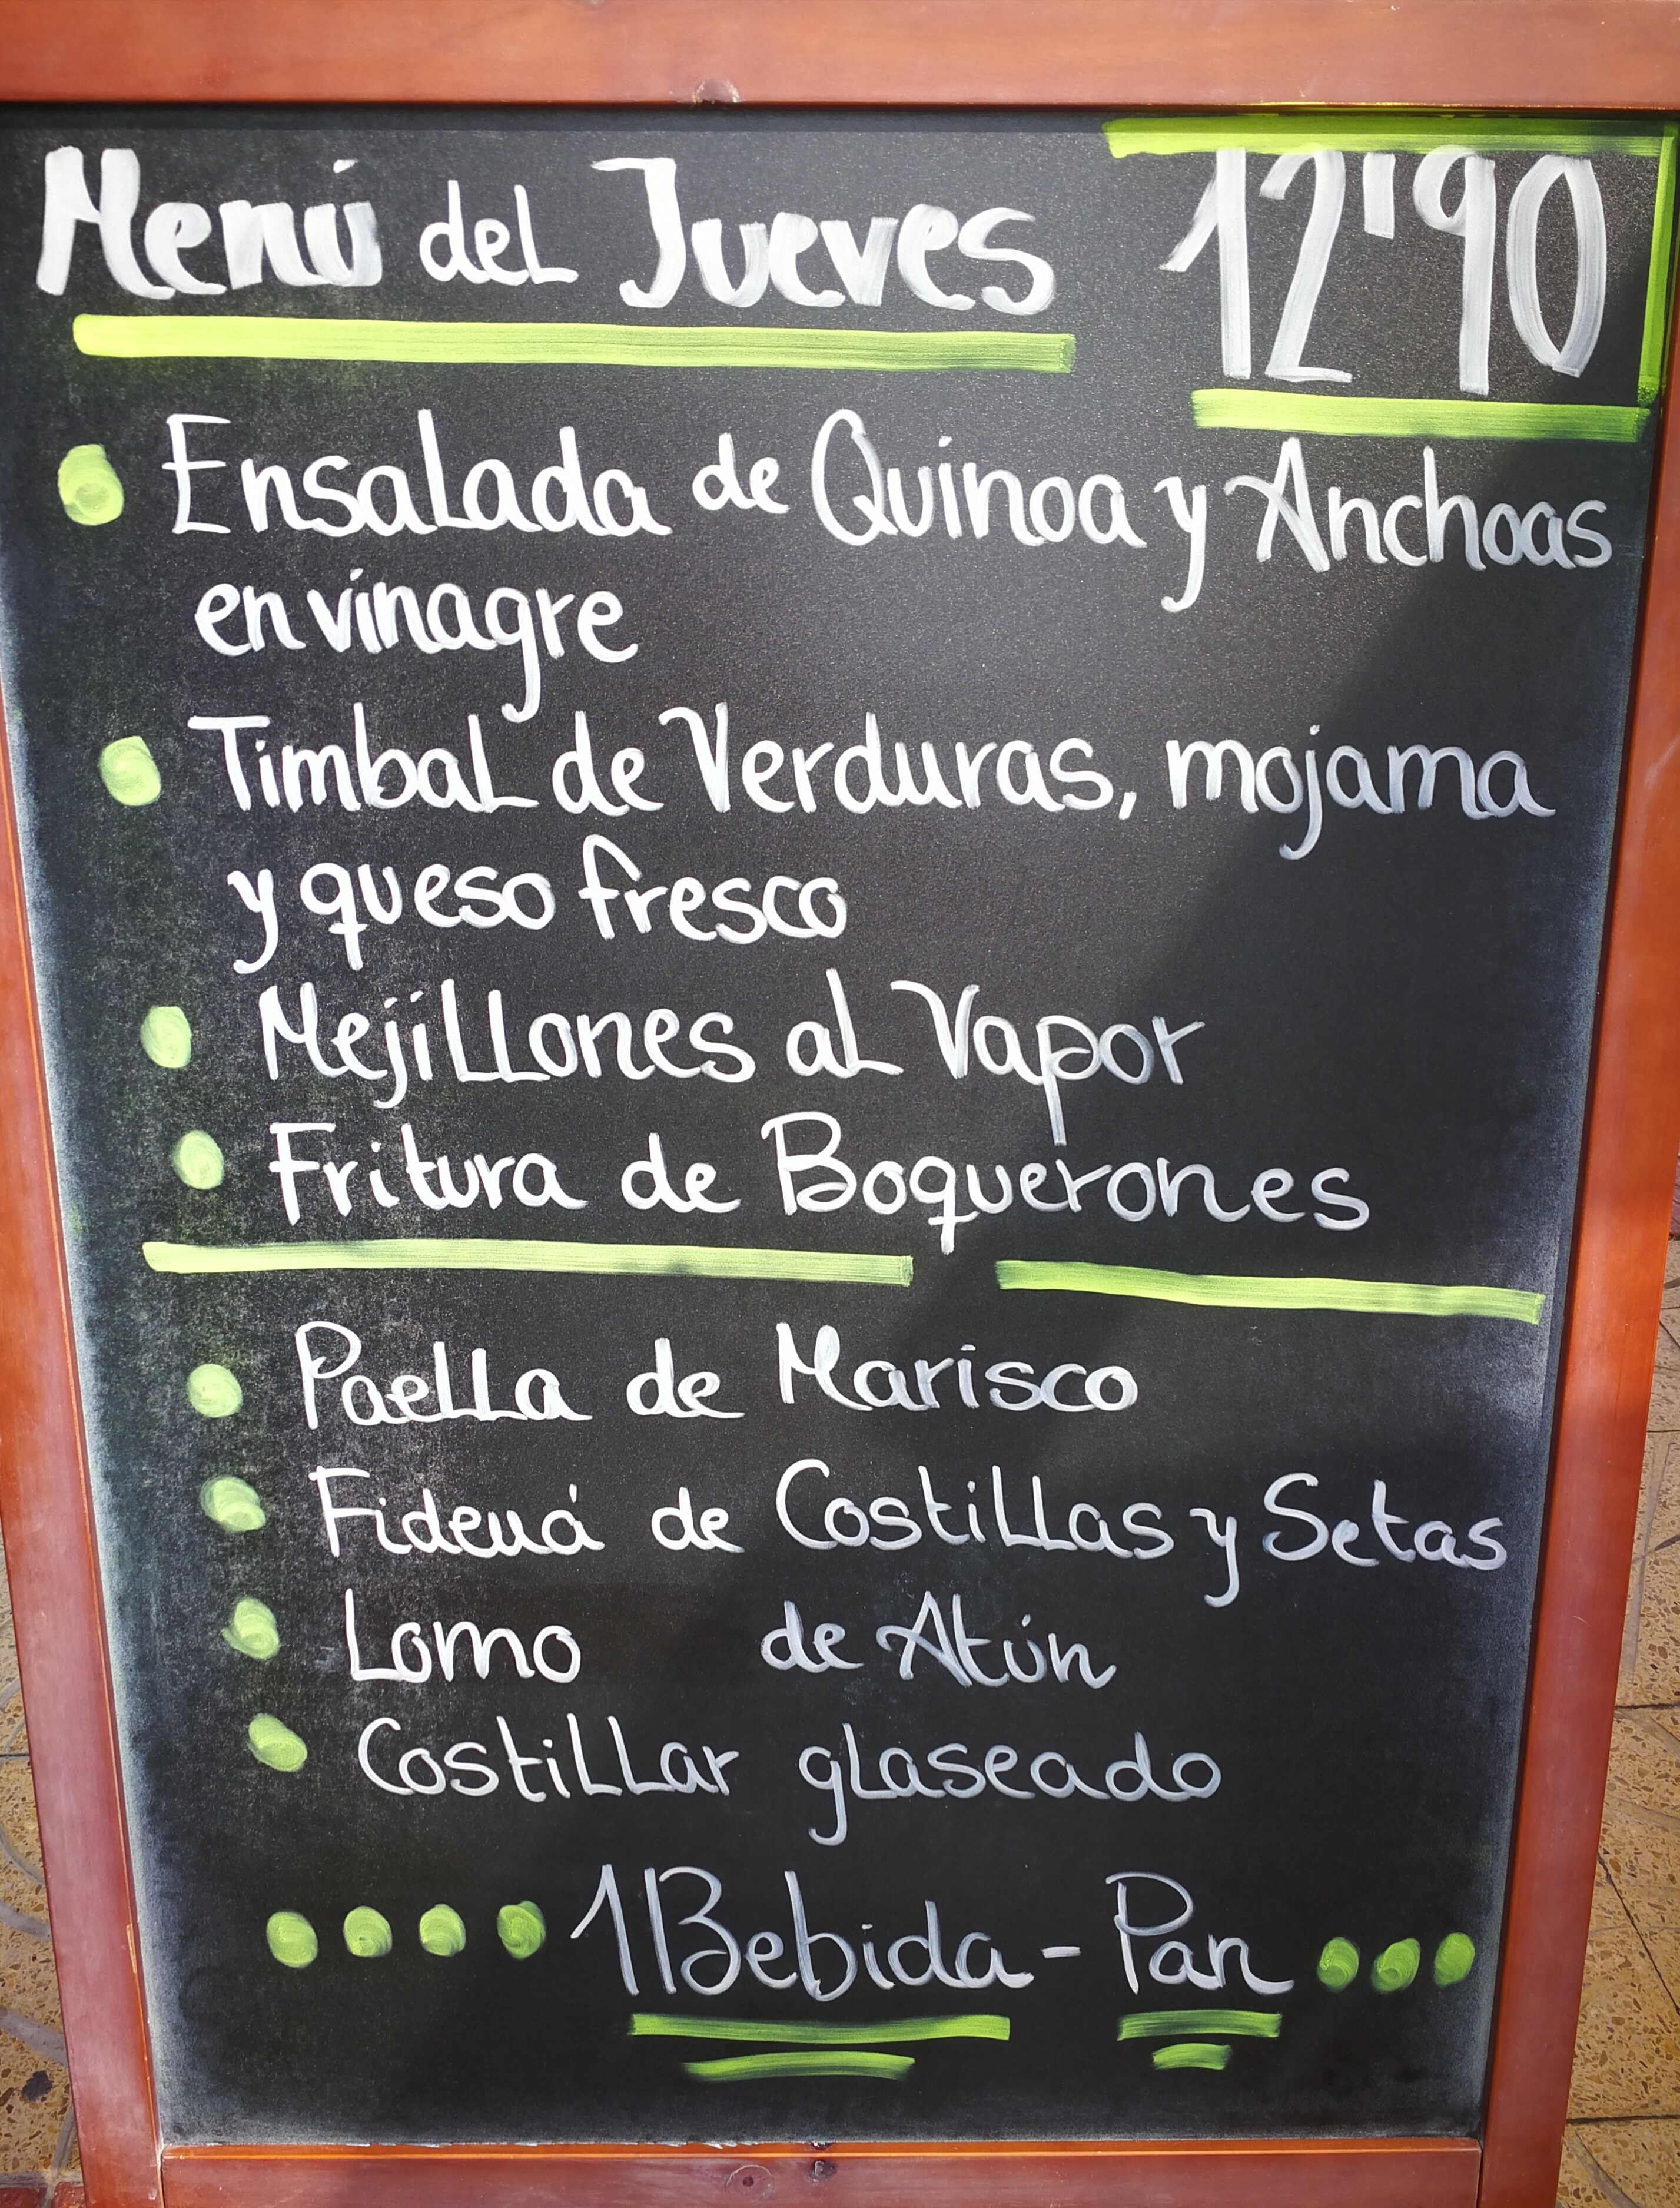 Menú del Jueves 12'90
Ensalada de Quinoa y Anchoas
en vinagre
Timbal de Verduras, mojama
y queso fresco
Mejillones al Vapor
Fritura de Boquerones
Paella de Marisco
Fideuá de Costillas y Setas
Lomo de Atún
Costillar glaseado
1 Bebida - Pan